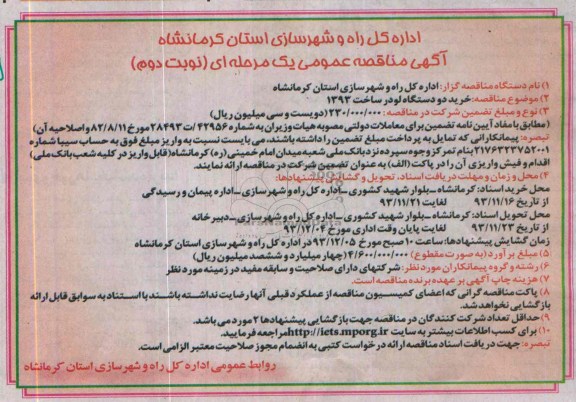 اداره کل راه و شهرسازی استان کرمانشاه
آگهی مناقصه عمومی یک مرحله ای (نوبت دوم)
۱) نام دستگاه مناقصه گزار: اداره کل راه و شهرسازی استان کرمانشاه
۲) موضوع مناقصه: خرید دو دستگاه لودر ساخت ۱۳۹۳
۳) نوع و مبلغ تضمین شرکت در مناقصه: ۲۳۰/۰۰۰/۰۰۰ (دویست و سی میلیون ریال)
(مطابق با مفاد آیین نامه تضمین برای معاملات دولتی مصوبه هیات وزیران به شماره ۴۲۹۵۶/ت۲۸۴۹۳ مورخ ۸۲/۸/۱۱ و اصلاحیه آن)
تبصره: پیمانکارانی که تمایل به پرداخت مبلغ تضمین را داشته باشند، می بایست نسبت به واریز مبلغ فوق به حساب سیبا شماره
۲۱۷۶۳۲۳۷۵۲۰۰۱ بنام تمرکز وجوه سپرده نزد بانک ملی شعبه میدان امام خمینی (ره) کرمانشاه (قابل واریز در کلیه شعب بانک ملی)
اقدام و فیش واریزی آن را در پاکت (الف) به عنوان تضمین شرکت در مناقصه ارائه نمایند.
۴) محل و زمان و مهلت دریافت اسناد، تحویل و گشایش پیشنهادها:
محل خرید اسناد: کرمانشاه ـ بلوار شهید کشوری ـ اداره کل راه و شهرسازی ـ اداره پیمان و رسیدگی
از تاریخ ۹۳/۱۱/۱۶ لغایت ۹۳/۱۱/۲۱
محل تحویل اسناد: کرمانشاه ـ بلوار شهید کشوری ـ اداره کل راه و شهرسازی ـ دبیرخانه
از تاریخ ۹۳/۱۱/۲۳ لغایت پایان وقت اداری مورخ ۹۳/۱۲/۰۴
زمان گشایش پیشنهادها: ساعت ۱۰ صبح مورخ ۹۳/۱۲/۰۵ در اداره کل راه و شهرسازی استان کرمانشاه
۵) مبلغ برآورد (به صورت مقطوع) ۴/۶۰۰/۰۰۰/۰۰۰ (چهار میلیارد و ششصد میلیون ریال)
۶) رشته و گروه پیمانکاران مورد نظر: شرکتهای دارای صلاحیت و سابقه مفید در زمینه مورد نظر
۷) هزینه چاپ آگهی بر عهده برنده مناقصه است.
۸) پاکت مناقصه گرانی که اعضای کمیسیون مناقصه از عملکرد قبلی آنها رضایت نداشته باشند با استناد به سوابق قابل ارائه
بازگشایی نخواهد شد.
۹) حداقل تعداد شرکت کنندگان در مناقصه جهت بازگشایی پیشنهادها ۲ مورد می باشد.
۱۰) برای کسب اطلاعات بیشتر به سایت http://iets.mporg.ir مراجعه فرمایید.
تبصره: جهت دریافت اسناد مناقصه ارائه درخواست کتبی به انضمام مجوز صلاحیت معتبر الزامی است.
روابط عمومی اداره کل راه و شهرسازی استان کرمانشاه